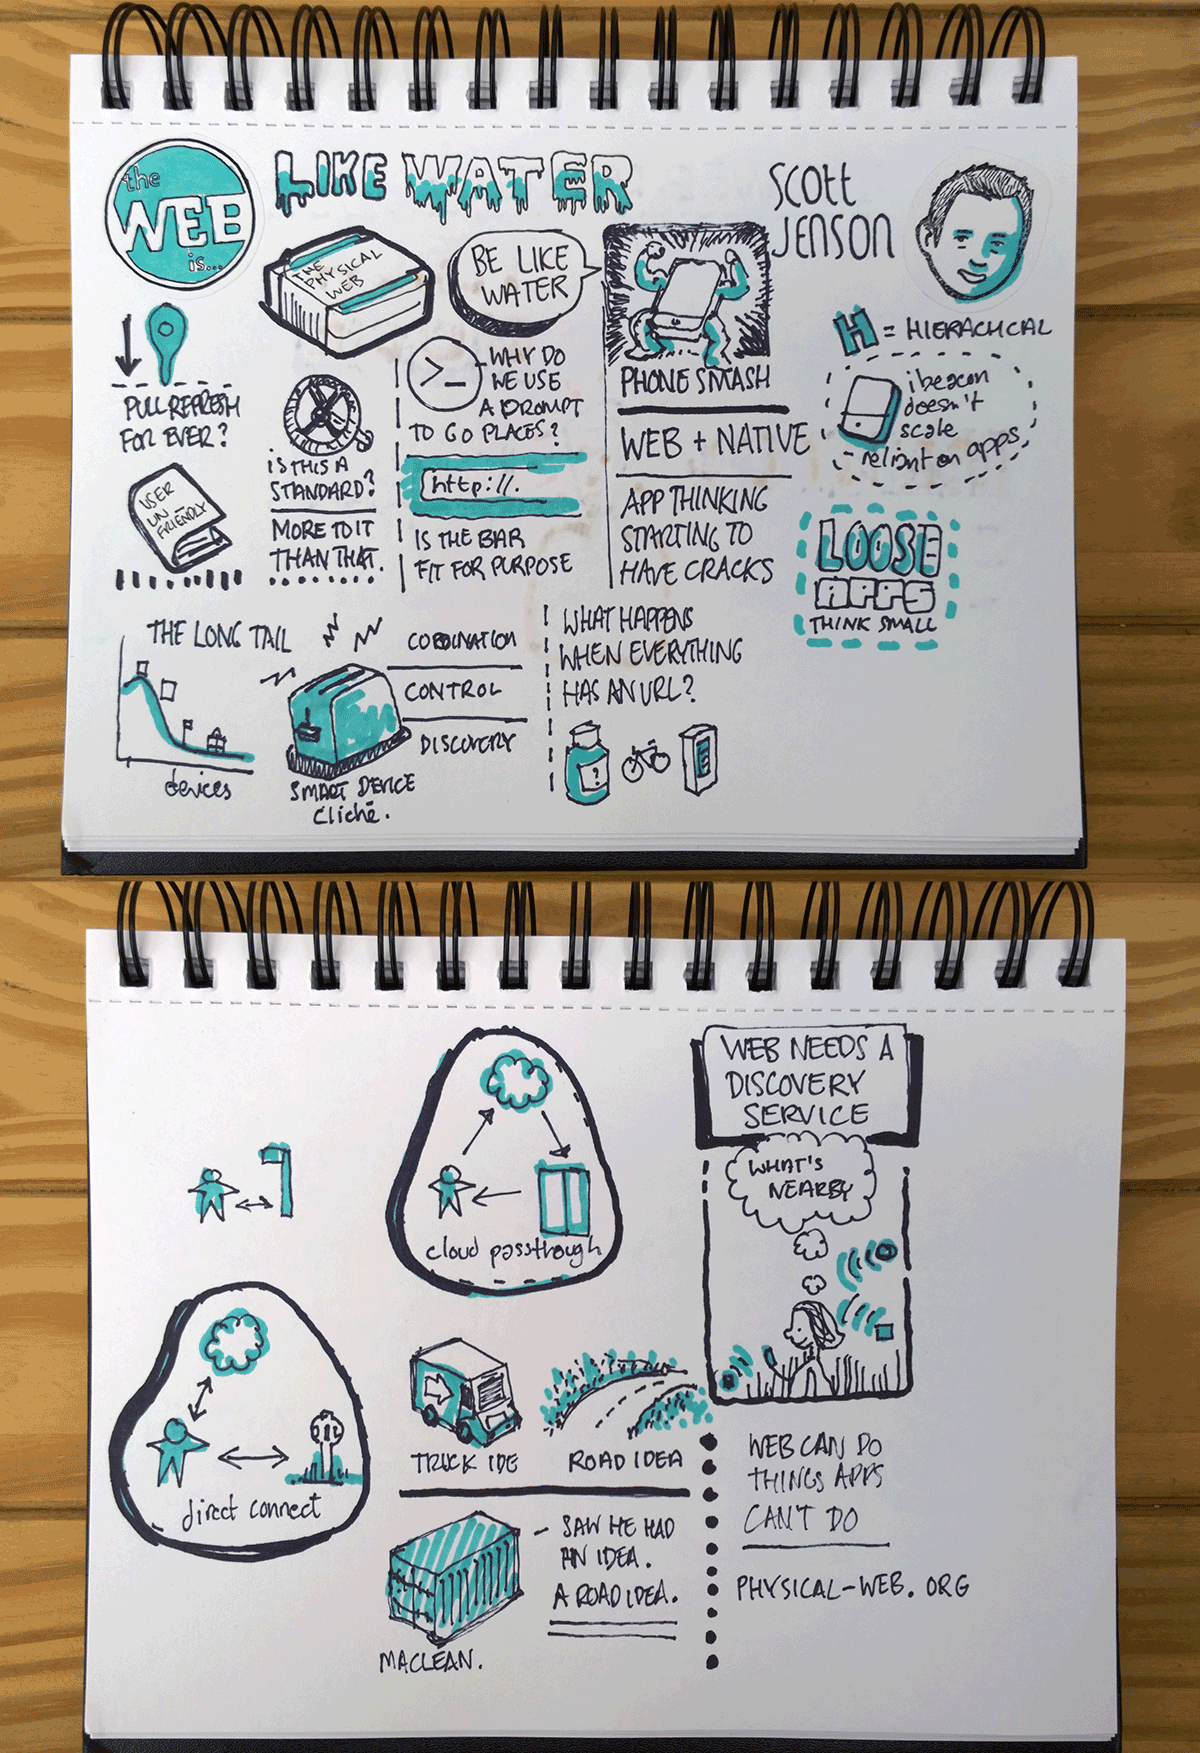 the
WEB
is...
LIKE WATER
SCOTT
JENSON
THE
PHYSICAL
WEB
BE LIKE
WATER
PULL REFRESH
FOR EVER?
USER
UN
FRIENDLY
IS THIS A
STANDARD?
MORE TO IT
THAN THAT.
>_
WHY DO
WE USE
A PROMPT
TO GO PLACES?
http://.
IS THE BAR
FIT FOR PURPOSE
PHONE SMASH
WEB + NATIVE
APP THINKING
STARTING TO
HAVE CRACKS
H = HIERACHCAL
ibeacon
doesn't
scale
reliant on apps
LOOSE
APPS
THINK SMALL
THE LONG TAIL
devices
SMART DEVICE
Cliché.
CONTROL
DISCOVERY
WHAT HAPPENS
WHEN EVERYTHING
HAS AN URL?
?
cloud passthrough
direct connect
TRUCK IDE
ROAD IDEA
MACLEAN.
- SAW HE HAD
AN IDEA.
A ROAD IDEA.
WEB NEEDS A
DISCOVERY
SERVICE
WHAT'S
NEARBY
WEB CAN DO
THINGS APPS
CAN'T DO
PHYSICAL-WEB.ORG